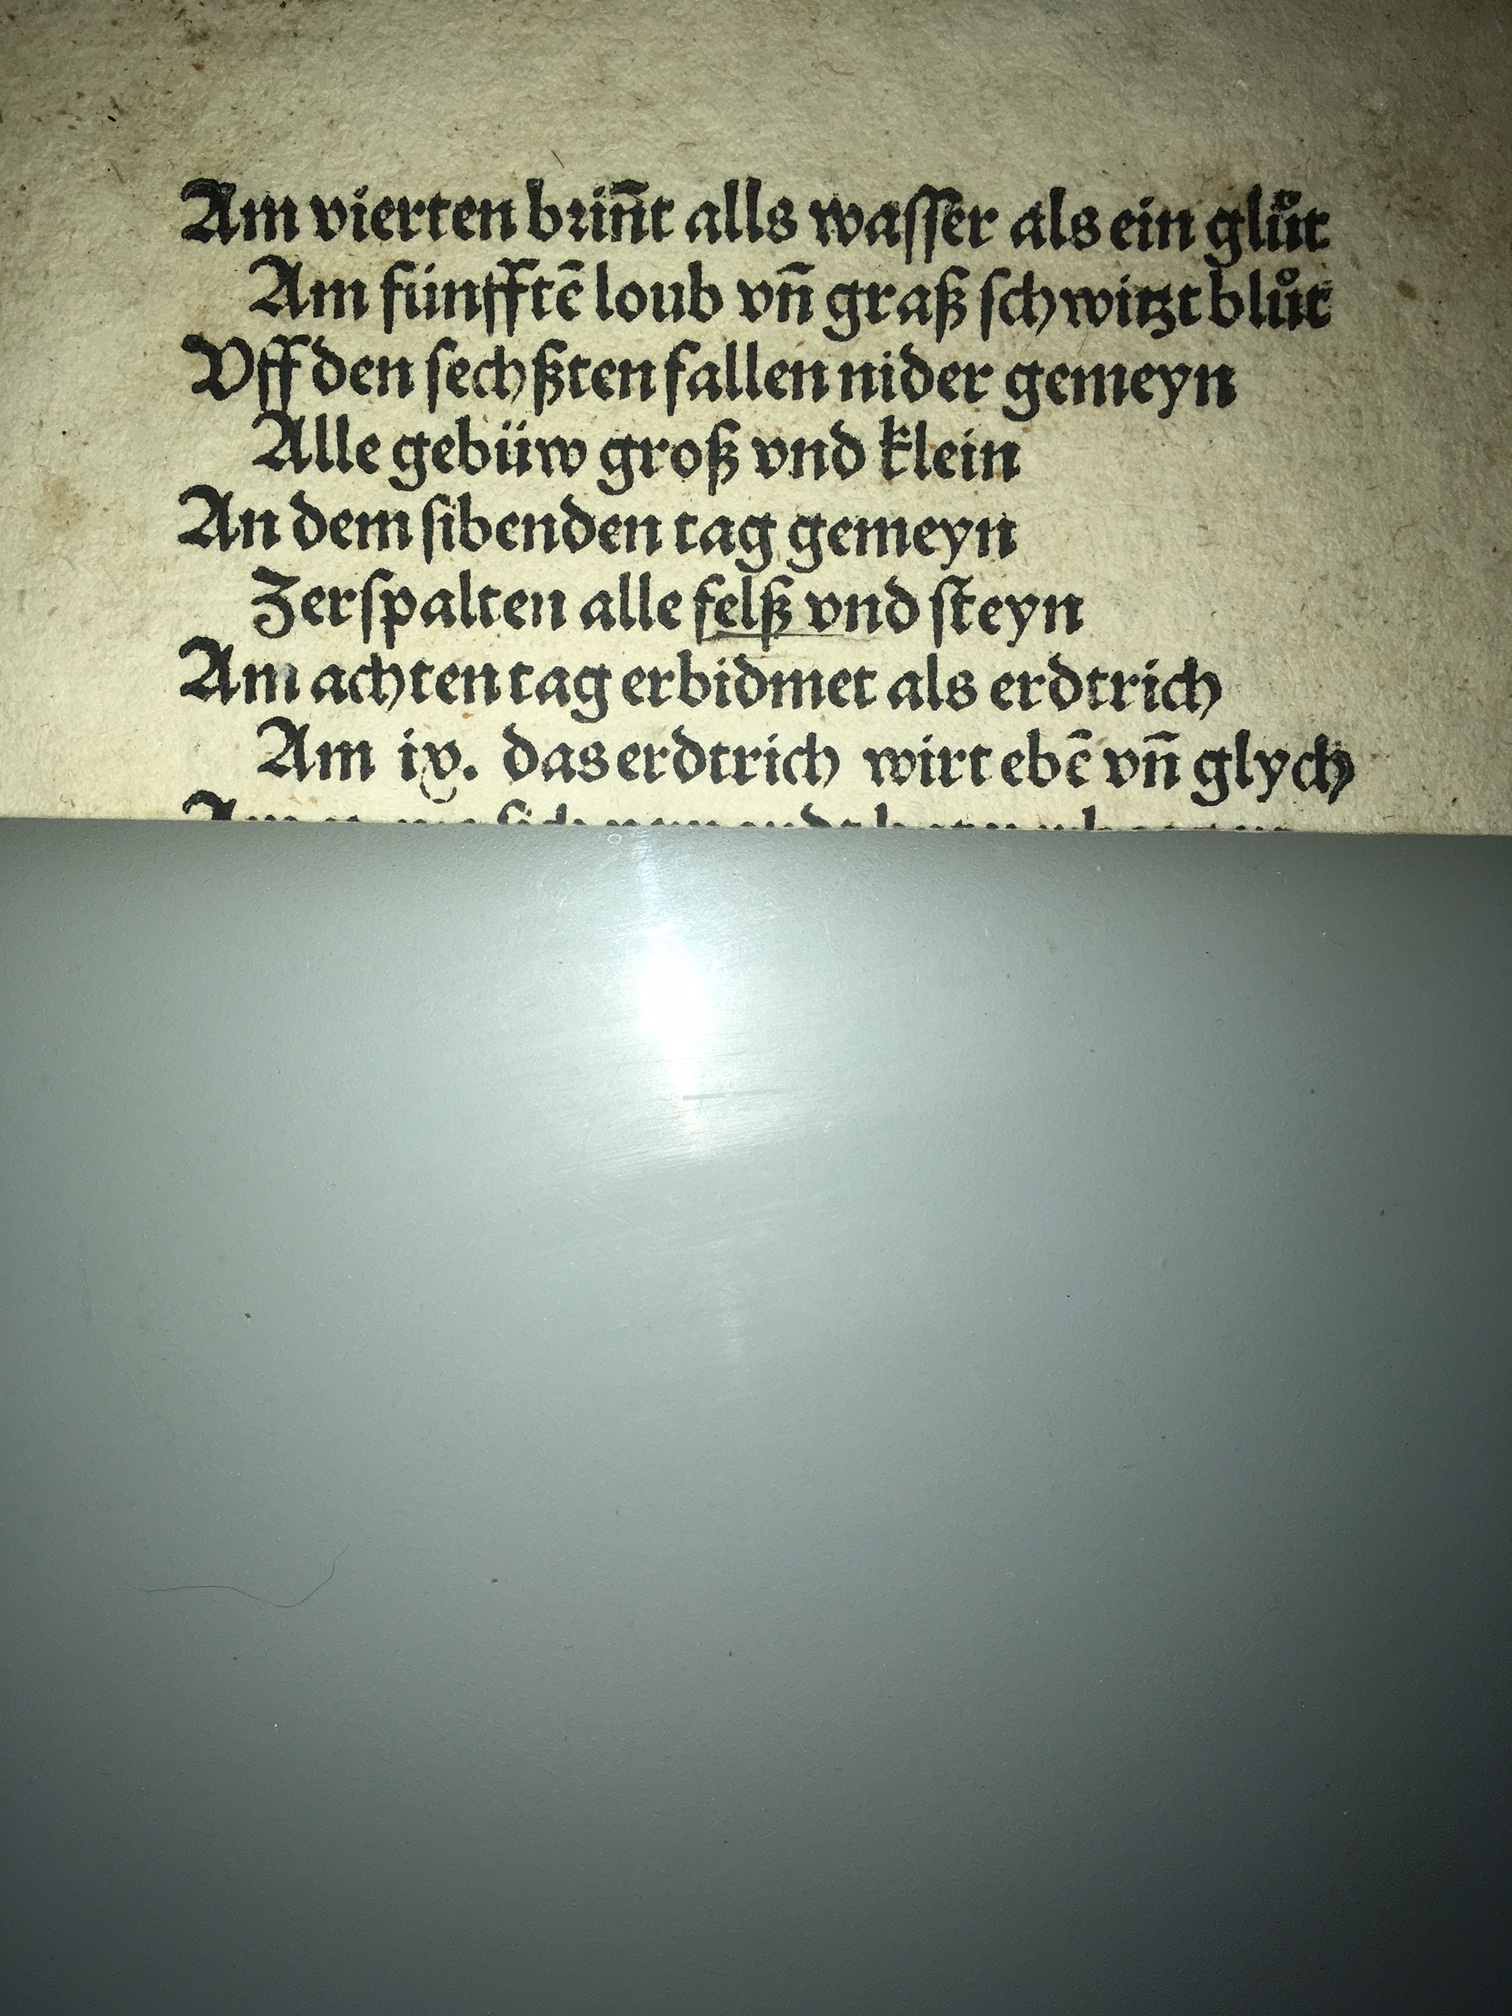 Am vierten brin̄t alls wasser als ein glůt
Am fünfftē loub vn̄ graß schwitzt blůt
Vff den sechßten fallen nider gemeyn
Alle gebüw groß vnd klein
An dem sibenden tag gemeyn
Zerspalten alle felß vnd steyn
Am achten tag erbidmet als erdtrich
Am ix. das erdtrich wirt ebē vn̄ glych